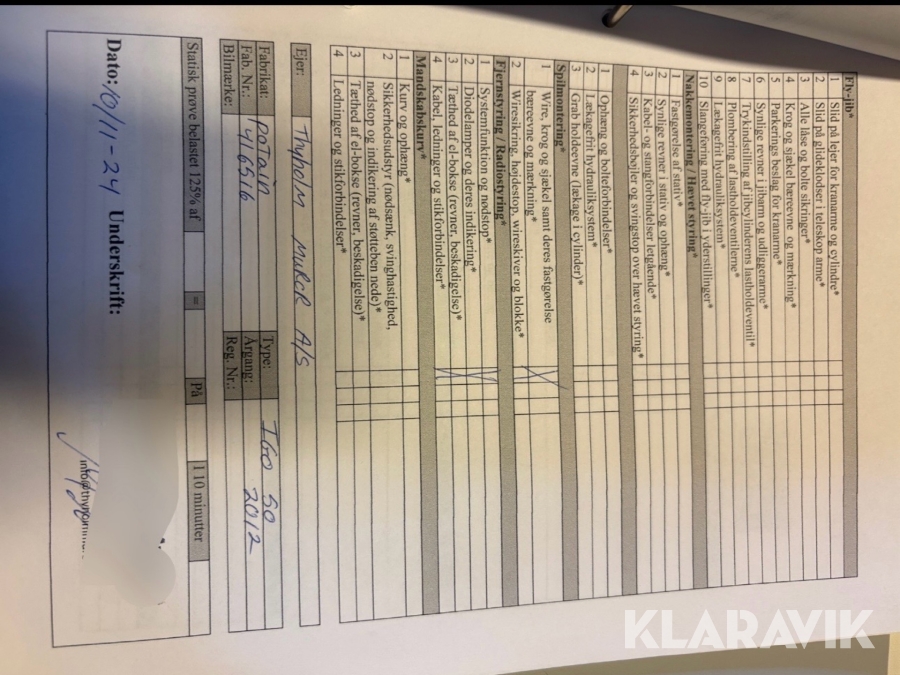 Fly-jib*
1 Slid på lejer for kranarme og cylindre*
2 Slid på glideklodser i teleskop arme*
3 Alle låse og bolte sikringer*
4 Krog og sjækel bæreevne og mærkning*
5 Parkerings beslag for kranarme*
6 Synlige revner i jibarm og udliggerarme*
7 Trykindstilling af jibcylinderens lastholdeventil*
8 Plombering af lastholdeventilerne*
9 Lækagefrit hydrauliksystem*
10 Slangeføring med fly-jib i yderstillinger*
Nakkemontering / Hævet styring*
1 Fastgørelse af stativ*
2 Synlige revner i stativ og ophæng*
3 Kabel- og stangforbindelser letgående*
4 Sikkerhedsbøjler og svingstop over hævet styring*
1 Ophæng og bolteforbindelser*
2 Lækagefrit hydrauliksystem*
3 Grab holdeevne (lækage i cylinder)*
Spilmontering*
1 Wire, krog og sjækel samt deres fastgørelse
bæreevne og mærkning*
2 Wiresikring, højdestop, wireskiver og blokke*
Fjernstyring / Radiostyring*
1 Systemfunktion og nødstop*
2 Diodelamper og deres indikering*
3 Tæthed af el-bokse (revner, beskadigelse)*
4 Kabel, ledninger og stikforbindelser*
Mandskabskurv*
1 Kurv og ophæng*
2 Sikkerhedsudstyr (nødsænk, svinghastighed,
nødstop og indikering af støtteben nede)*
3 Tæthed af el-bokse (revner, beskadigelse)*
4 Ledninger og stikforbindelser*
Ejer: Thyholm MURER A/S
Fabrikat: POTAIN Type: IGO 50
Fab. Nr.: 416516 Årgang: 2012
Bilmærke: Reg. Nr.:
Statisk prøve belastet 125% af = På I 10 minutter
Dato: 10/11-24 Underskrift:
KLARAVIK